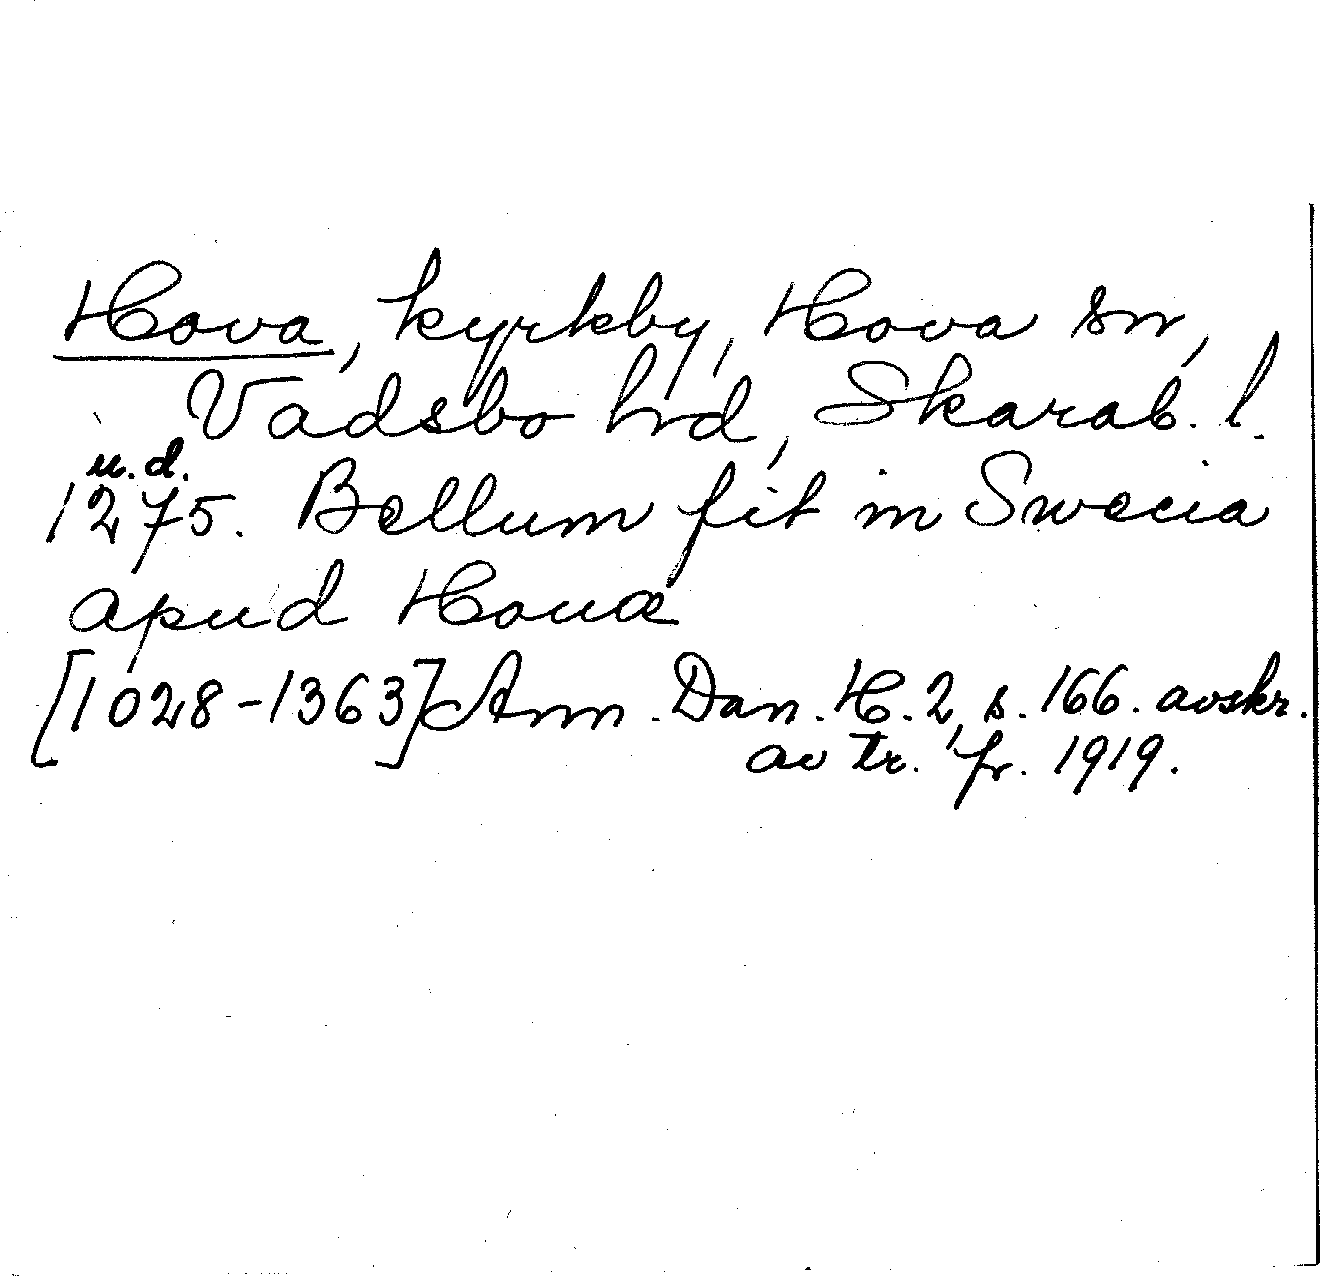 Hova, kyrkby, Hova sn,
Vadsbo hrd, Skarab. l.
u.d.
1275. Bellum fit in Swecia
apud Houæ
[1028-1363] Ann. Dan. H. 2, s. 166. avskr.
av tr. fr. 1919.